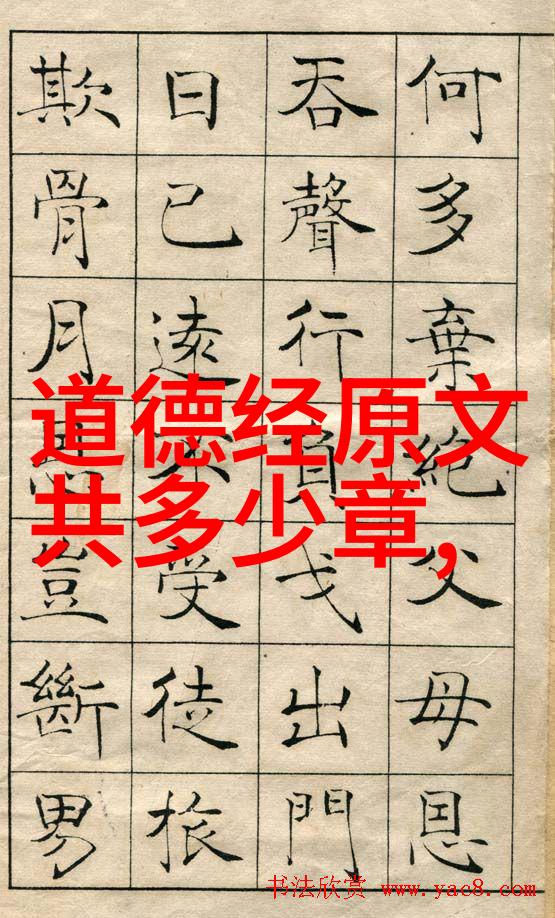 何多棄絕父母恩
吞聲行負戈出門
日已遠不受徒旅
欺骨月恩豈斷男
道德经原文
共多少章,
书法欣赏 www.yac8.com